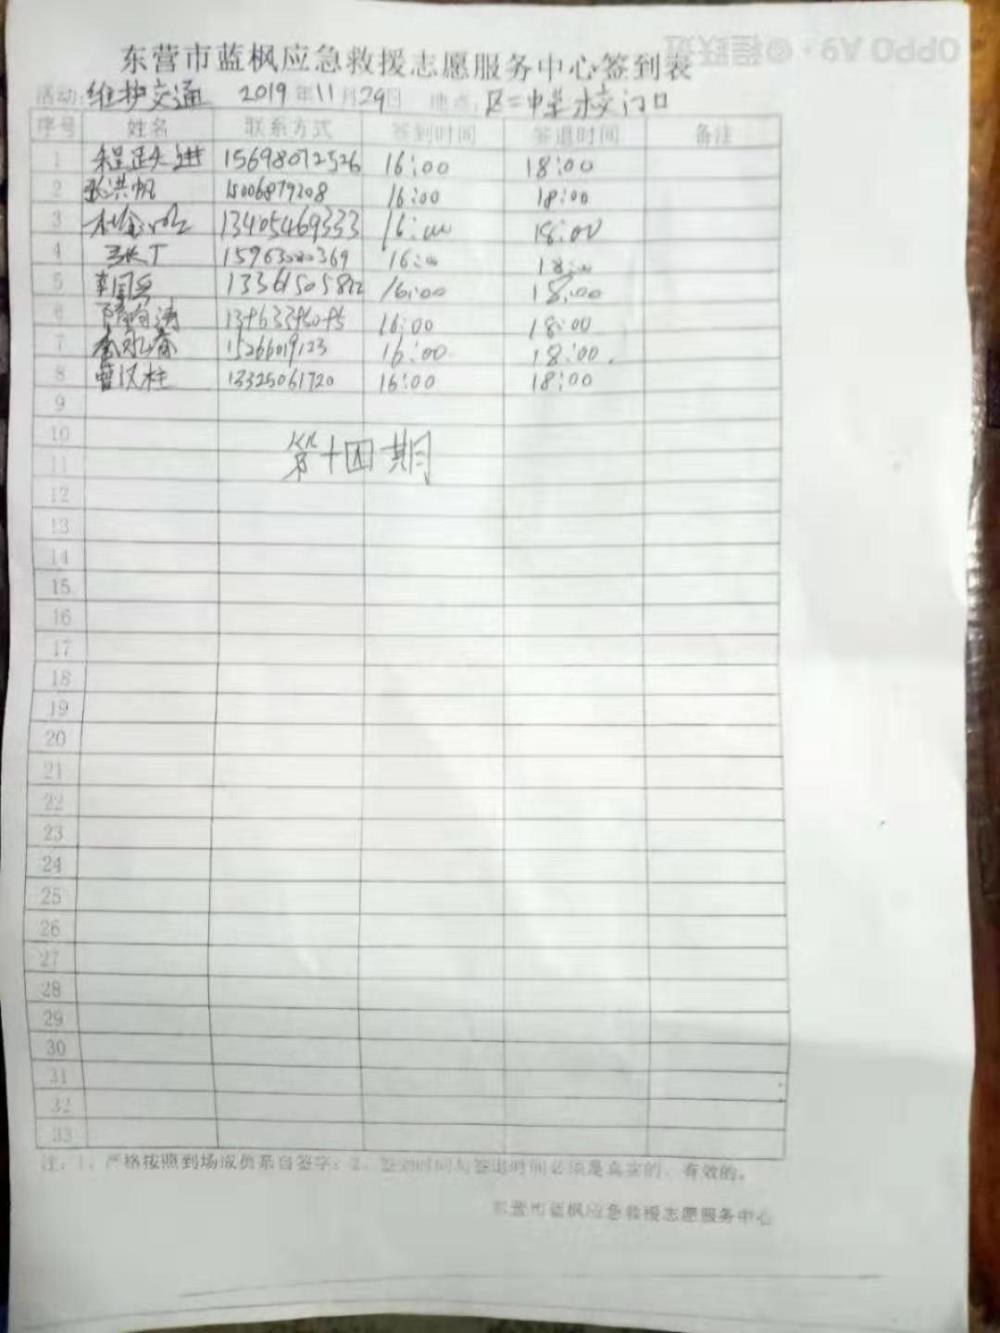 OPPO A9 · ©程跃进
东营市蓝枫应急救援志愿服务中心签到表
活动:维护交通 2019年11月29日 地点:区二中学校门口
序号 姓名 联系方式 签到时间 签退时间 备注
1 程跃进 15698072526 16:00 18:00
2 张洪帆 15006879208 16:00 18:00
3 13405469333 16:00 18:00
4 张丁 16:00 18:00
5 李国兵 16:00 18:00
6 16:00 18:00
7 李永春 15266019123 16:00 18:00.
8 曹汉柱 13325061720 16:00 18:00
9
10
第十四期
11
12
13
14
15
16
17
18
19
20
21
22
23
24
25
26
27
28
29
30
31
32
33
注:1、严格按照到场成员亲自签字;2、签到时间与签退时间必须是真实的、有效的。
东营市蓝枫应急救援志愿服务中心